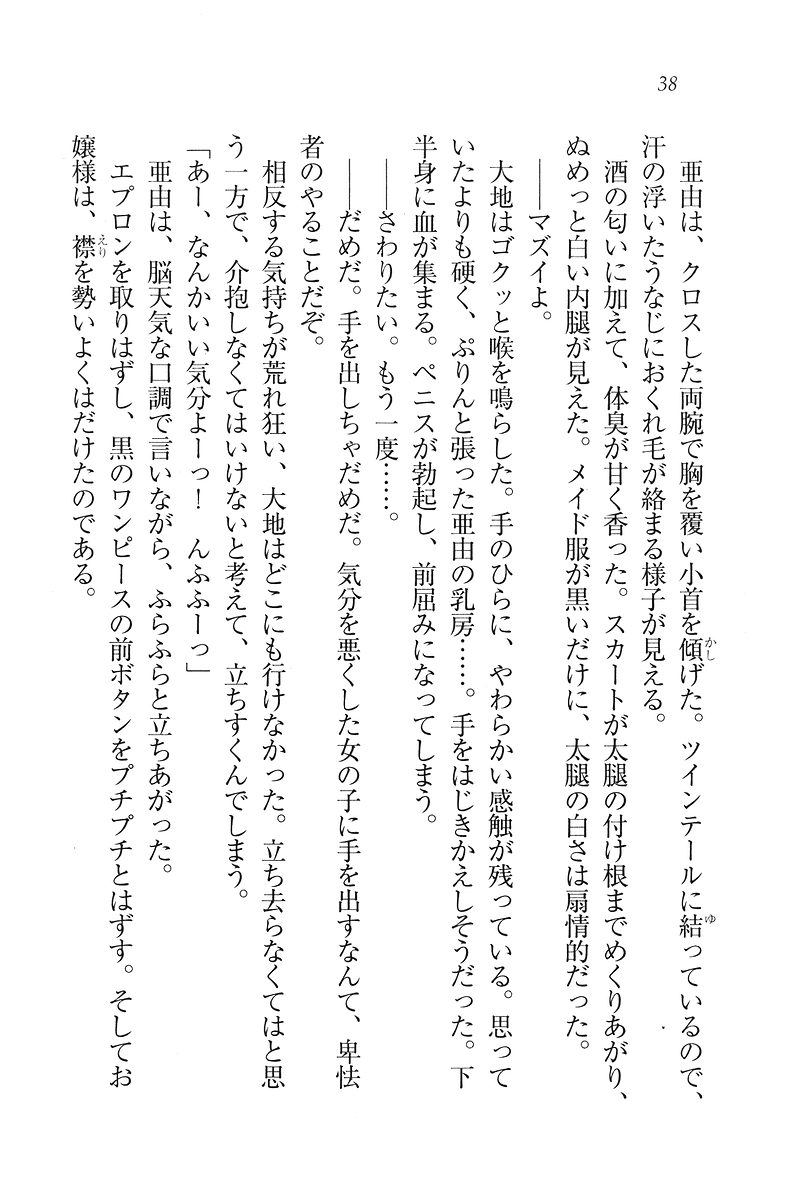 38
亜由は、クロスした両腕で胸を覆い小首を傾げた。ツインテールに結っているので、
汗の浮いたうなじにおくれ毛が絡まる様子が見える。
酒の匂いに加えて、体臭が甘く香った。スカートが太腿の付け根までめくりあがり、
ぬめっと白い内腿が見えた。メイド服が黒いだけに、太腿の白さは扇情的だった。
――マズイよ。
大地はゴクッと喉を鳴らした。手のひらに、やわらかい感触が残っている。思って
いたよりも硬く、ぷりんと張った亜由の乳房……。手をはじきかえしそうだった。下
半身に血が集まる。ペニスが勃起し、前屈みになってしまう。
――さわりたい。もう一度……。
――だめだ。手を出しちゃだめだ。気分を悪くした女の子に手を出すなんて、卑怯
者のやることだぞ。
相反する気持ちが荒れ狂い、大地はどこにも行けなかった。立ち去らなくてはと思
う一方で、介抱しなくてはいけないと考えて、立ちすくんでしまう。
「あー、なんかいい気分よーっ！　んふふーっ」
亜由は、脳天気な口調で言いながら、ふらふらと立ちあがった。
エプロンを取りはずし、黒のワンピースの前ボタンをプチプチとはずす。そしてお
嬢様は、襟を勢いよくはだけたのである。
かし
ゆ
えり